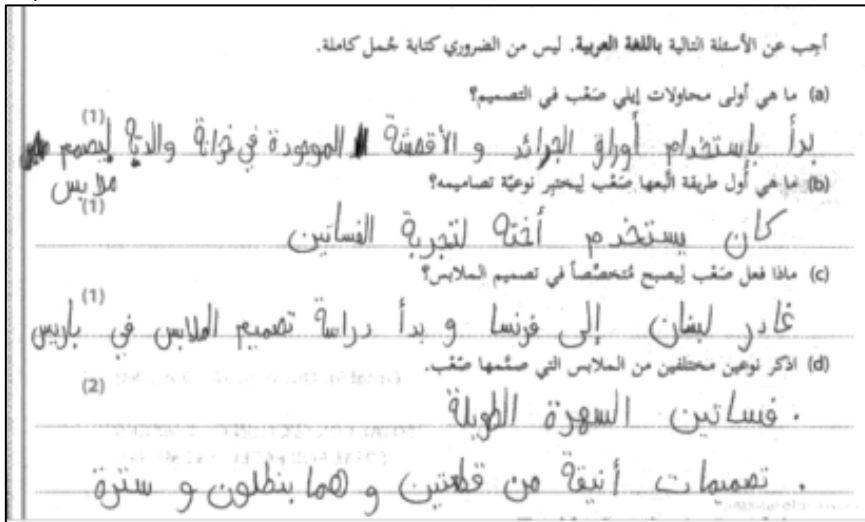 أجِب عن الأسئلة التالية باللغة العربية. ليس من الضروري كتابة جُمل كاملة.
(a) ما هي أولى محاولات إيلي صَعْب في التصميم؟
(1)
بدأ بإستخدام أوراق الجرائد و الأقمشة الموجودة في خزانة والديه ليصمم
ملابس
(b) ما هي أول طريقة اتّبعها صَعْب لِيختبِر نوعيّة تصاميمه؟
(1)
كان يستخدم أخته لتجربة الفساتين
(c) ماذا فعل صَعْب لِيصبح مُتخصِّصاً في تصميم الملابس؟
(1)
غادر لبنان إلى فرنسا و بدأ دراسة تصميم الملابس في باريس
(d) اذكر نوعين مختلفين من الملابس التي صمَّمها صَعْب.
(2)
. فساتين السهرة الطويلة
. تصميمات أنيقة من قطعتين و هما بنطلون و سترة